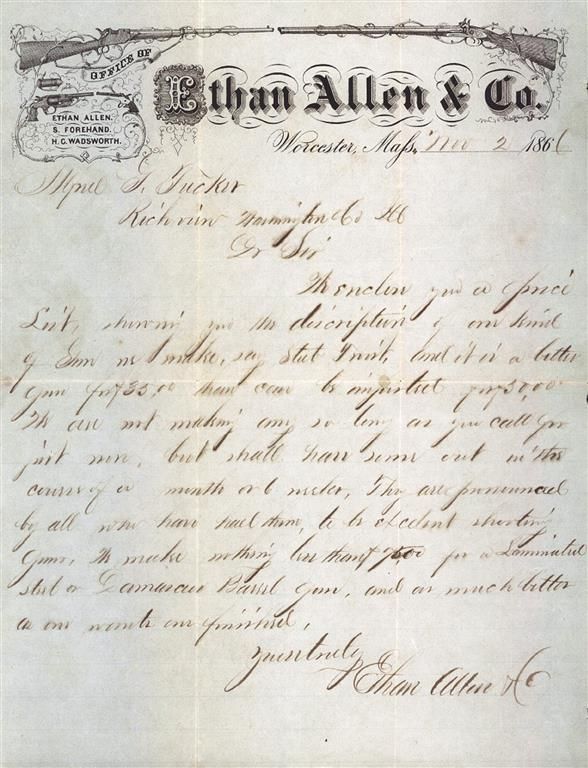 OFFICE OF
Ethan Allen & Co.
ETHAN ALLEN.
S. FOREHAND.
H. C. WADSWORTH.
Worcester, Mass, Nov 2 1866
F. Tucker
Richview Washington Co Ill
Dr Sir
We enclose you a Price
List, showing you the description of one kind
of Gun we make, say Steel Twist, and it is a better
gun for $35,00 than can be imported for $50,00
We are not making any so long as you call for
just now, but shall have some out in the
course of a month or 6 weeks, They are pronounced
by all who have had them, to be excelent shooting
Guns, We make nothing less than for a Laminated
steel or Damascus Barrel Gun, and as much better
as one wants one finished,
Yours truly
Ethan Allen & Co